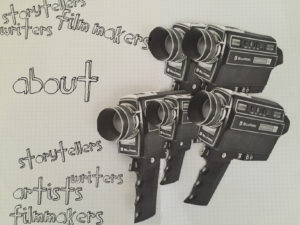 storytellers
writers filmmakers
about
storytellers
writers
artists
filmmakers